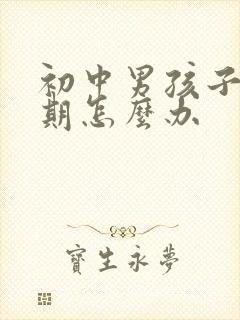 初中男孩子
期怎麼办
寶生永夢